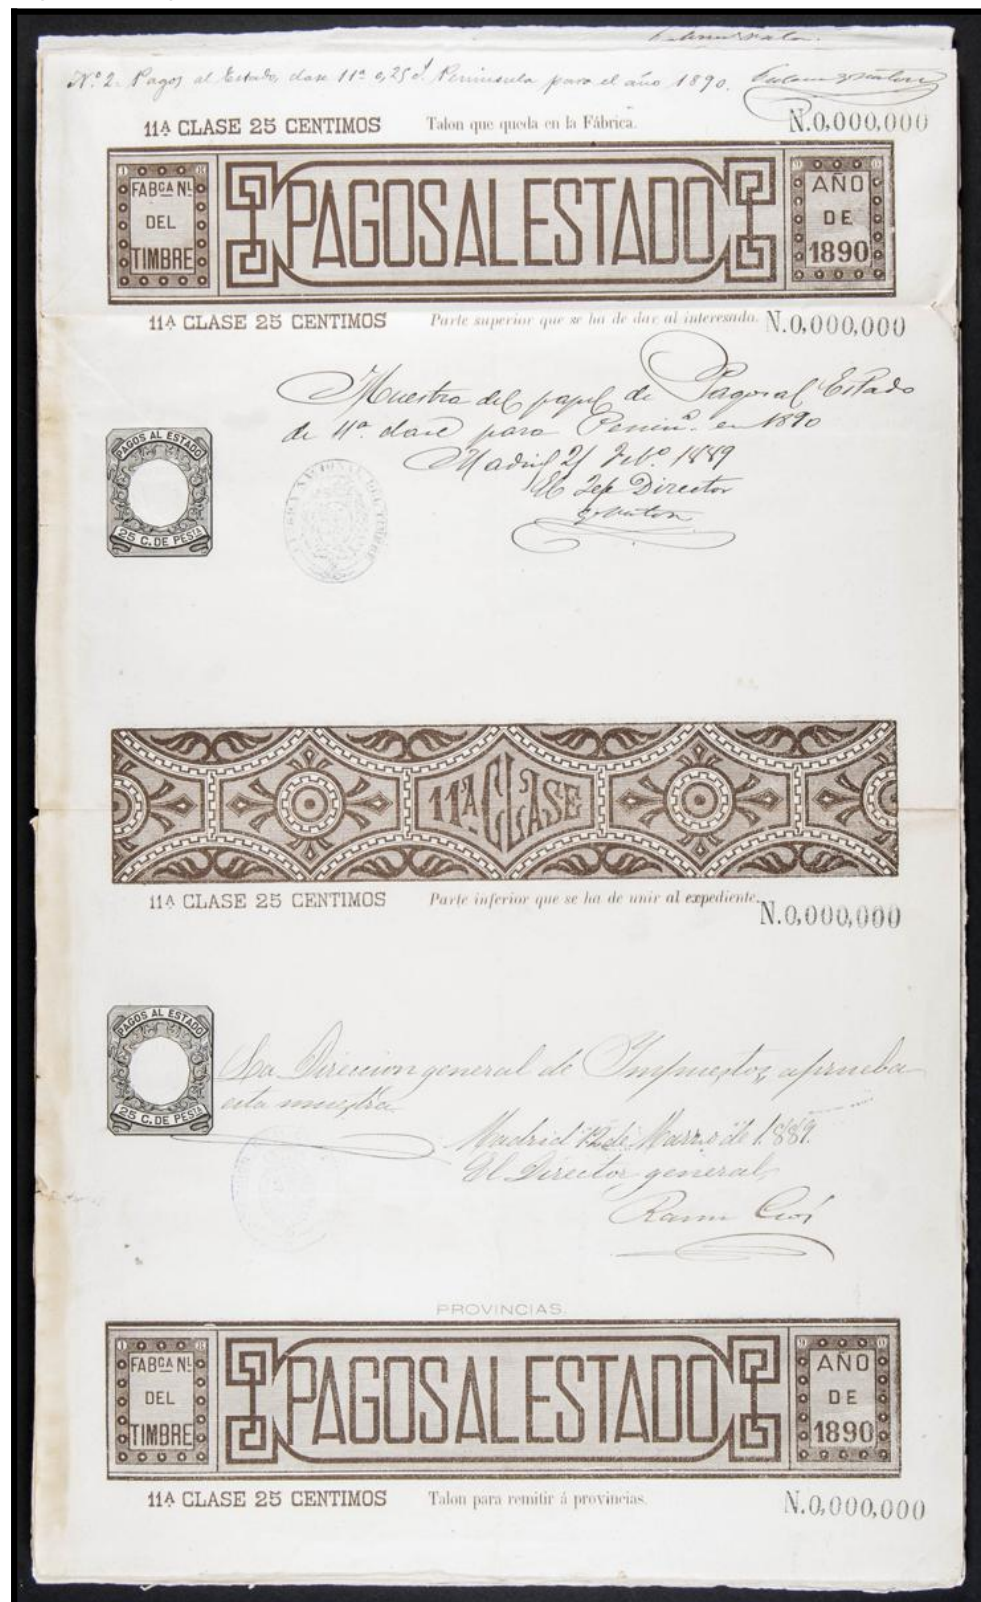 Nº 2. Pagos al Estado, clase 11ª 0,25 Península para el año 1890.
11ª CLASE 25 CENTIMOS Talon que queda en la Fábrica. N.0,000,000
FABCA NL DEL TIMBRE PAGOS AL ESTADO AÑO DE 1890
11ª CLASE 25 CENTIMOS Parte superior que se ha de dar al interesado. N.0,000,000
Muestra del papel de Pagos al Estado
de 11ª clase para Peninª en 1890
Madrid 21 Febº 1889
El Jefe Director
PAGOS AL ESTADO
25 C. DE PESTA
11ª CLASE
11ª CLASE 25 CENTIMOS Parte inferior que se ha de unir al expediente. N.0,000,000
PAGOS AL ESTADO
25 C. DE PESTA
La Direccion general de Impuestos, aprueba
esta muestra.
Madrid 12 de Marzo de 1889.
El Director general,
PROVINCIAS.
FABCA NL DEL TIMBRE PAGOS AL ESTADO AÑO DE 1890
11ª CLASE 25 CENTIMOS Talon para remitir á provincias. N.0,000,000